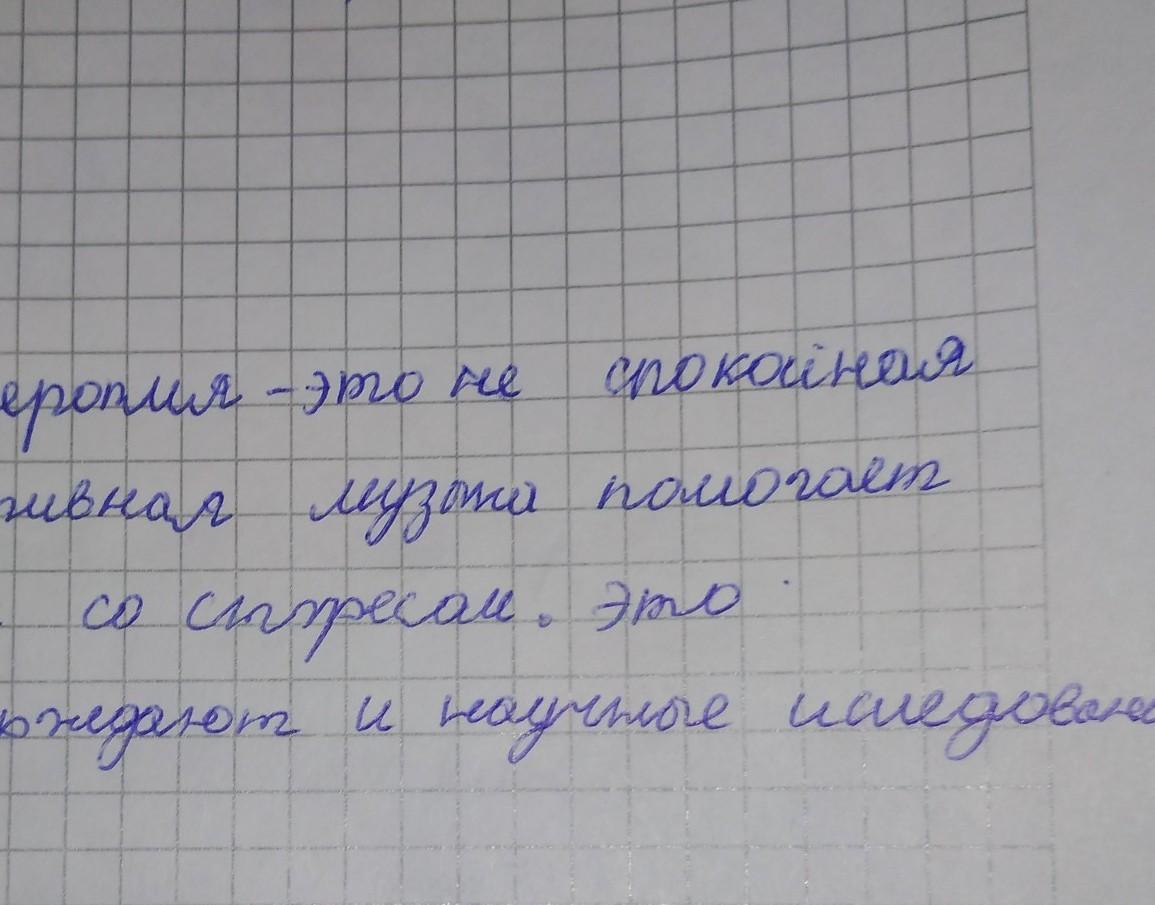 еропия - это не спокойная
живная музыка помогает
со стресом. это
рждают и научные иследован